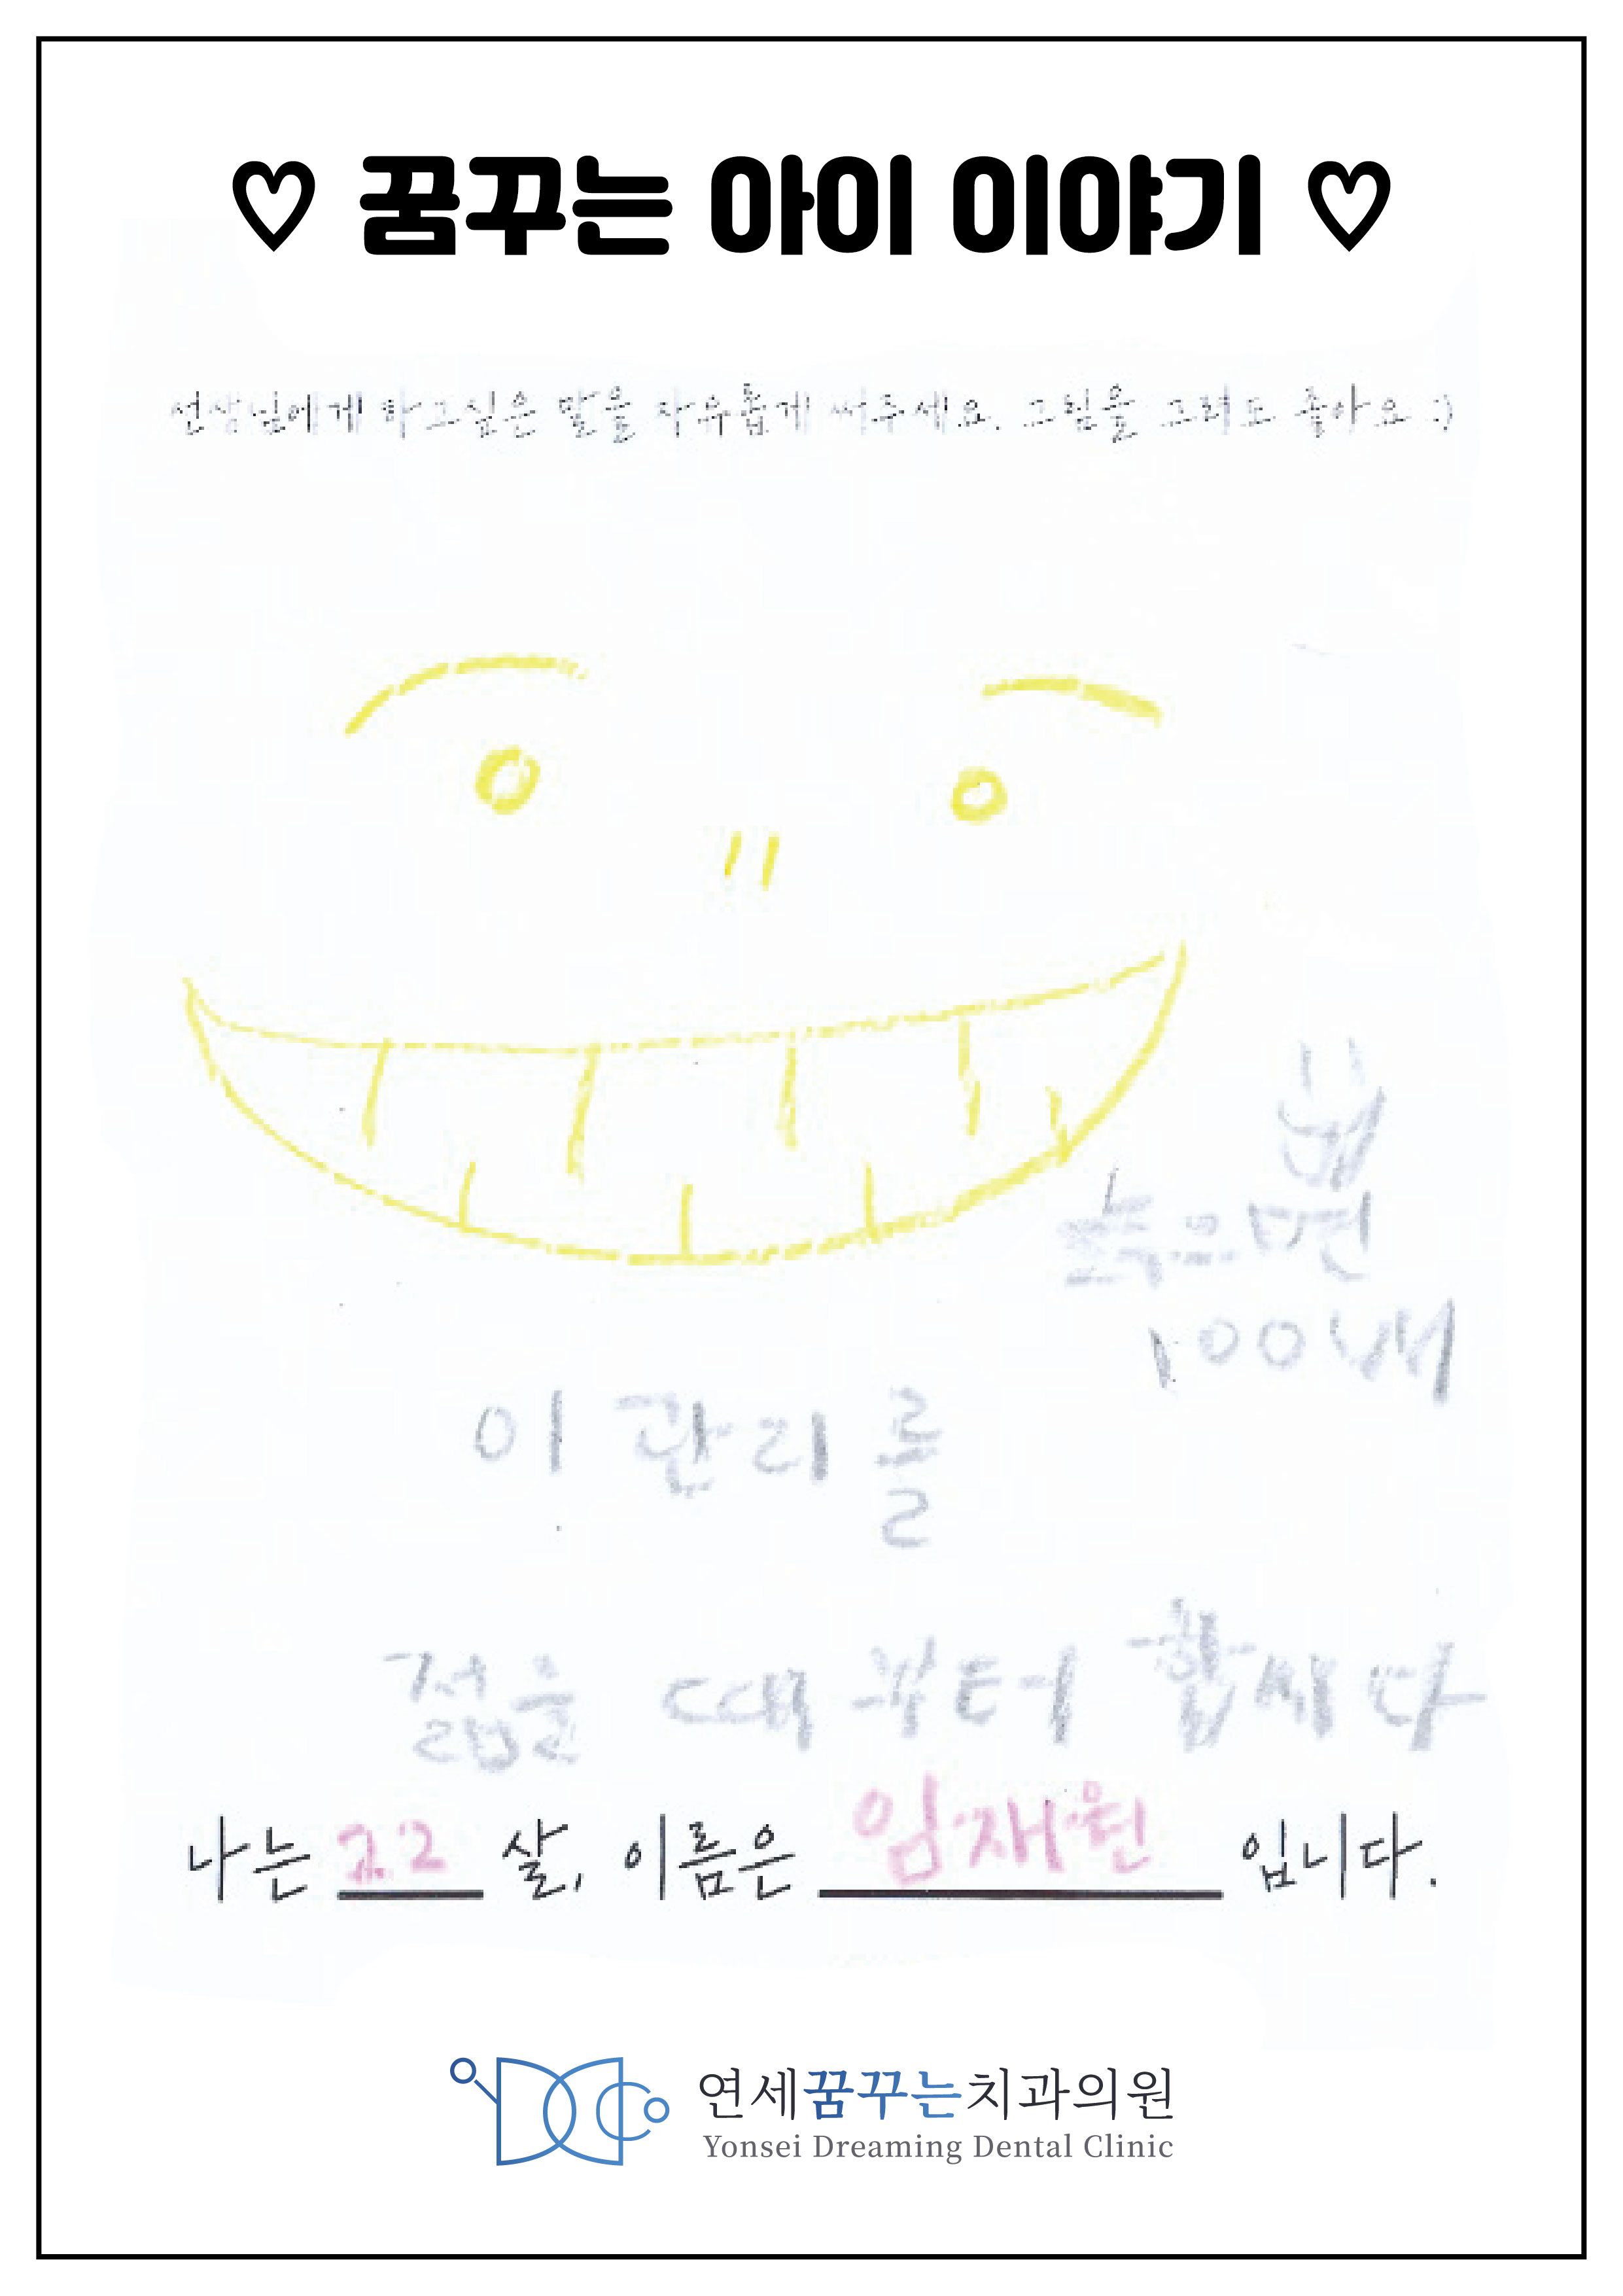 ♡ 꿈꾸는 아이 이야기 ♡
선생님에게 하고싶은 말을 자유롭게 써주세요. 그림을 그려도 좋아요 :)
늙으면
100배
이 관리를
젊을 때 부터 합시다
나는 22 살, 이름은 임재원 입니다.
연세꿈꾸는치과의원
Yonsei Dreaming Dental Clinic